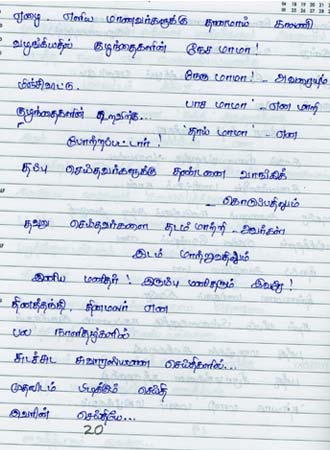 ஏழை, எளிய மாணவர்களுக்கு தானமாய் கல்வி
வழங்கியதில் குழந்தைகளின் நேச மாமா!
நேரு மாமா! - அவரையும்
மிஞ்சிவிட்ட பாச மாமா' - என மாறி
குழந்தைகளின் உறவிலே... 'தாய் மாமா' - என
போற்றப்பட்டார்!
தப்பு செய்தவர்களுக்கு தண்டனை வாங்கிக்
கொடுப்பதிலும்
தவறு செய்தவர்களை தடம் மாற்றி - அவர்கள்
இடம் மாற்றுவதிலும்
இனிய மனிதர்! இரும்பு மனிதரும் இவரே!
தினத்தந்தி, தினமலர் என
பல நாளிதழ்களில்
சுடச்சுட சுவாரஸியமான செய்திகளில்...
முதலிடம் பிடிக்கும் செய்தி
இவரின் செய்தியே...
20